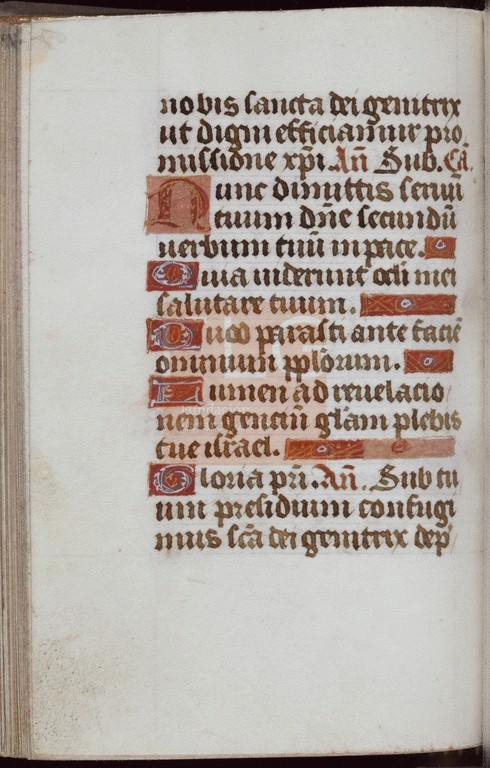 nobis sancta dei genitrix
ut digni efficiamur pro
missione xpi. An̄ Sub. Cā.
Nunc dimittis seruū
tuum dn̄e secundū
uerbum tuū in pace.
Quia uiderunt oculi mei
salutare tuum.
Quod parasti ante faciē
omnium pplorum.
Lumen ad reuelacio
nem genciū glām plebis
tue israel.
Gloria pri. An̄. Sub tu
um presidium confugi
mus scā dei genitrix dep